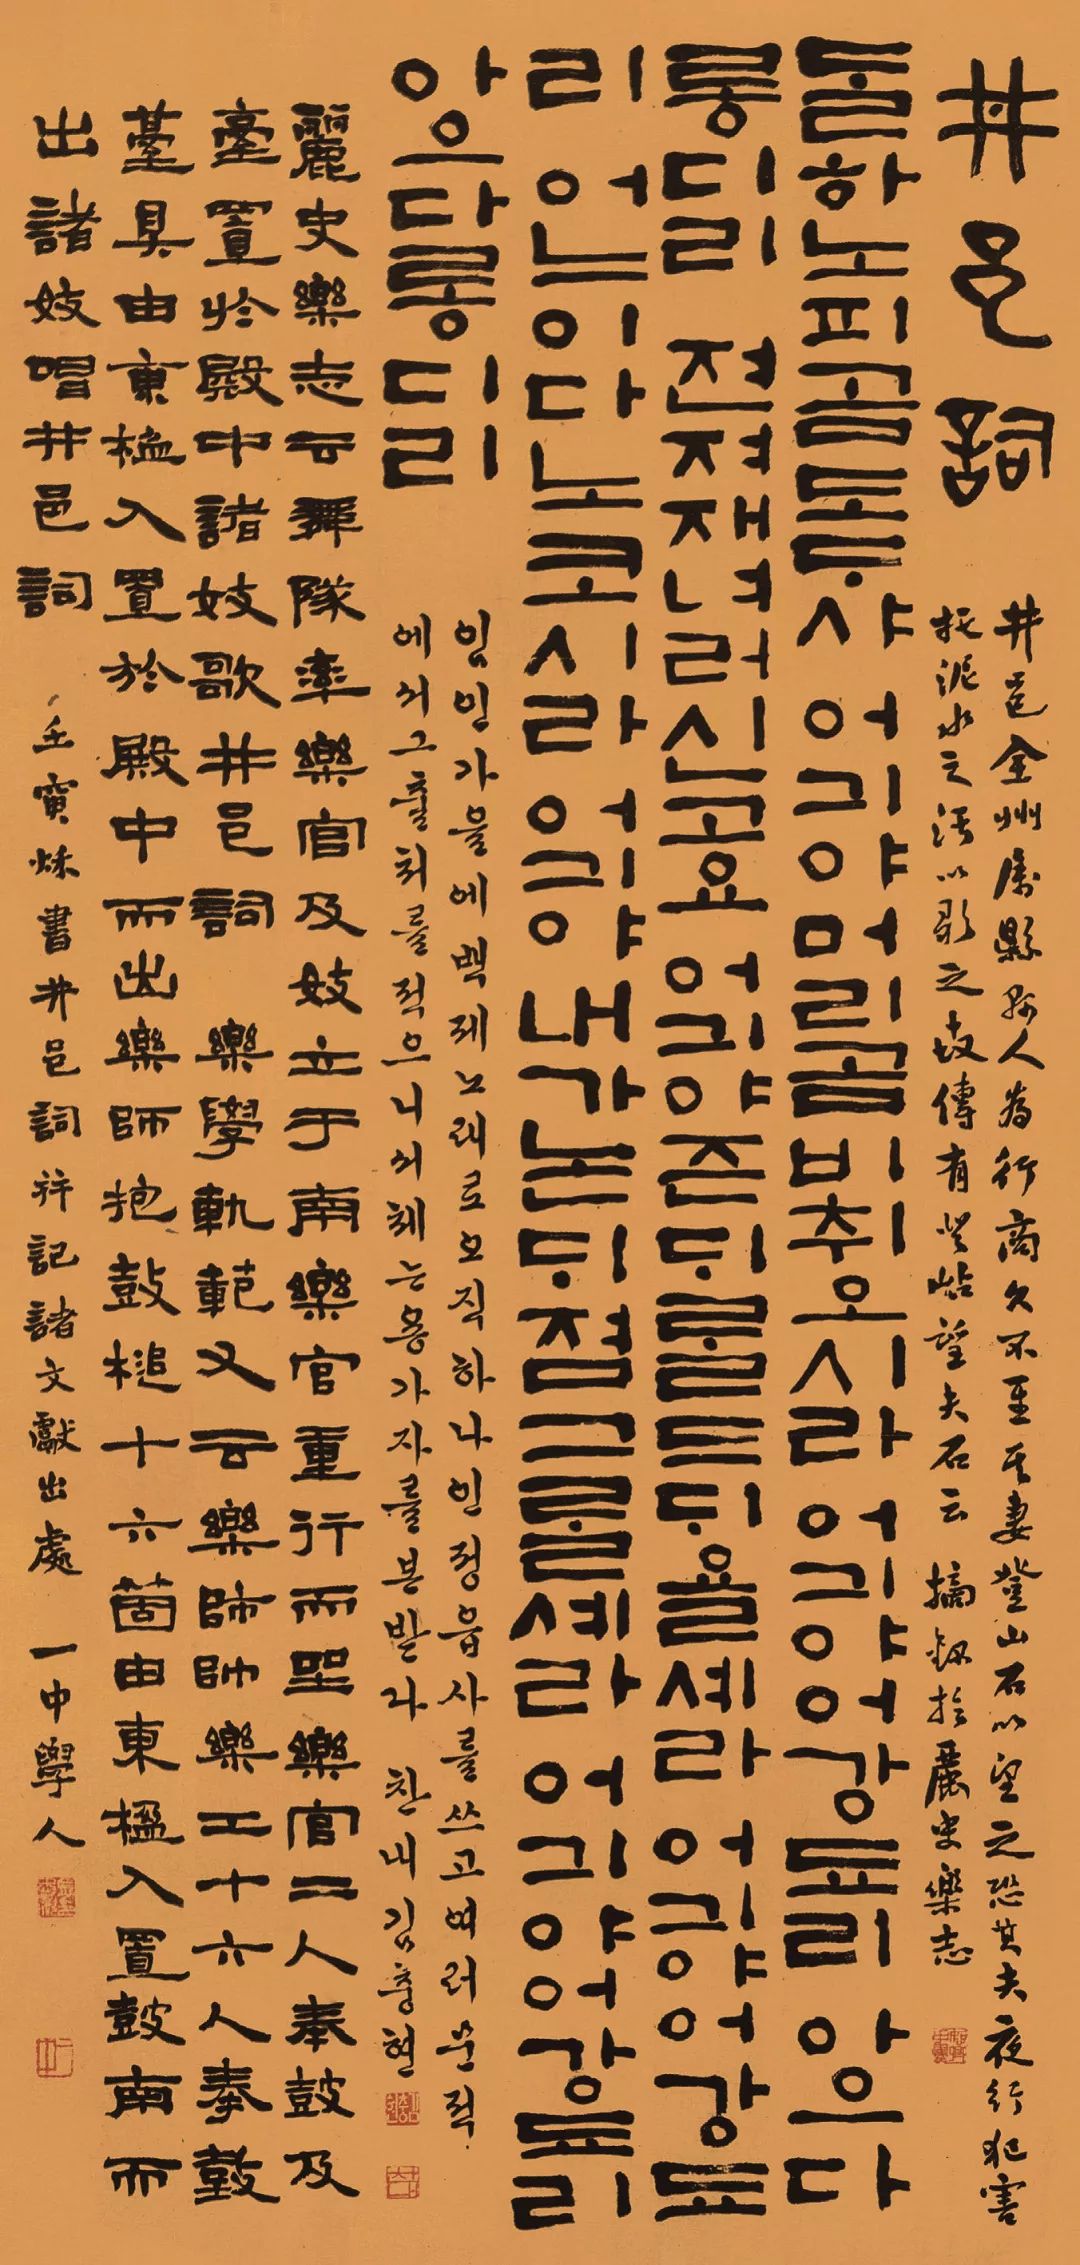 井邑詞
井邑全州屬縣縣人爲行商久不至其妻登山石以望之恐其夫夜行犯害
托泥水之汚以歌之世傳有登岾望夫石云 摘錄於麗史樂志
ᄃᆞᆯ하노피곰도ᄃᆞ샤 어긔야머리곰비취오시라 어긔야어강됴리 아으다
롱디리 젼져재녀러신고요 어긔야즌ᄃᆡᄅᆞᆯ드ᄃᆡ욜셰라 어긔야어강됴
리 어느이다노코시라 어긔야내가논ᄃᆡ졈그ᄅᆞᆯ셰라 어긔야어강됴리
아으다롱디리
임인가을에백제노래로오직하나인정읍사를쓰고여러문적
에서그출처를적으니서체는용가자를본받다 찬내김충현
麗史樂志云舞隊率樂官及妓立于南樂官重行而坐樂官二人奉鼓及
臺置於殿中諸妓歌井邑詞 樂學軌範又云樂師帥樂工十六人奉鼓
臺具由東楹入置於殿中而出樂師抱鼓槌十六箇由東楹入置鼓南而
出諸妓唱井邑詞 壬寅秋書井邑詞幷記諸文獻出處 一中學人